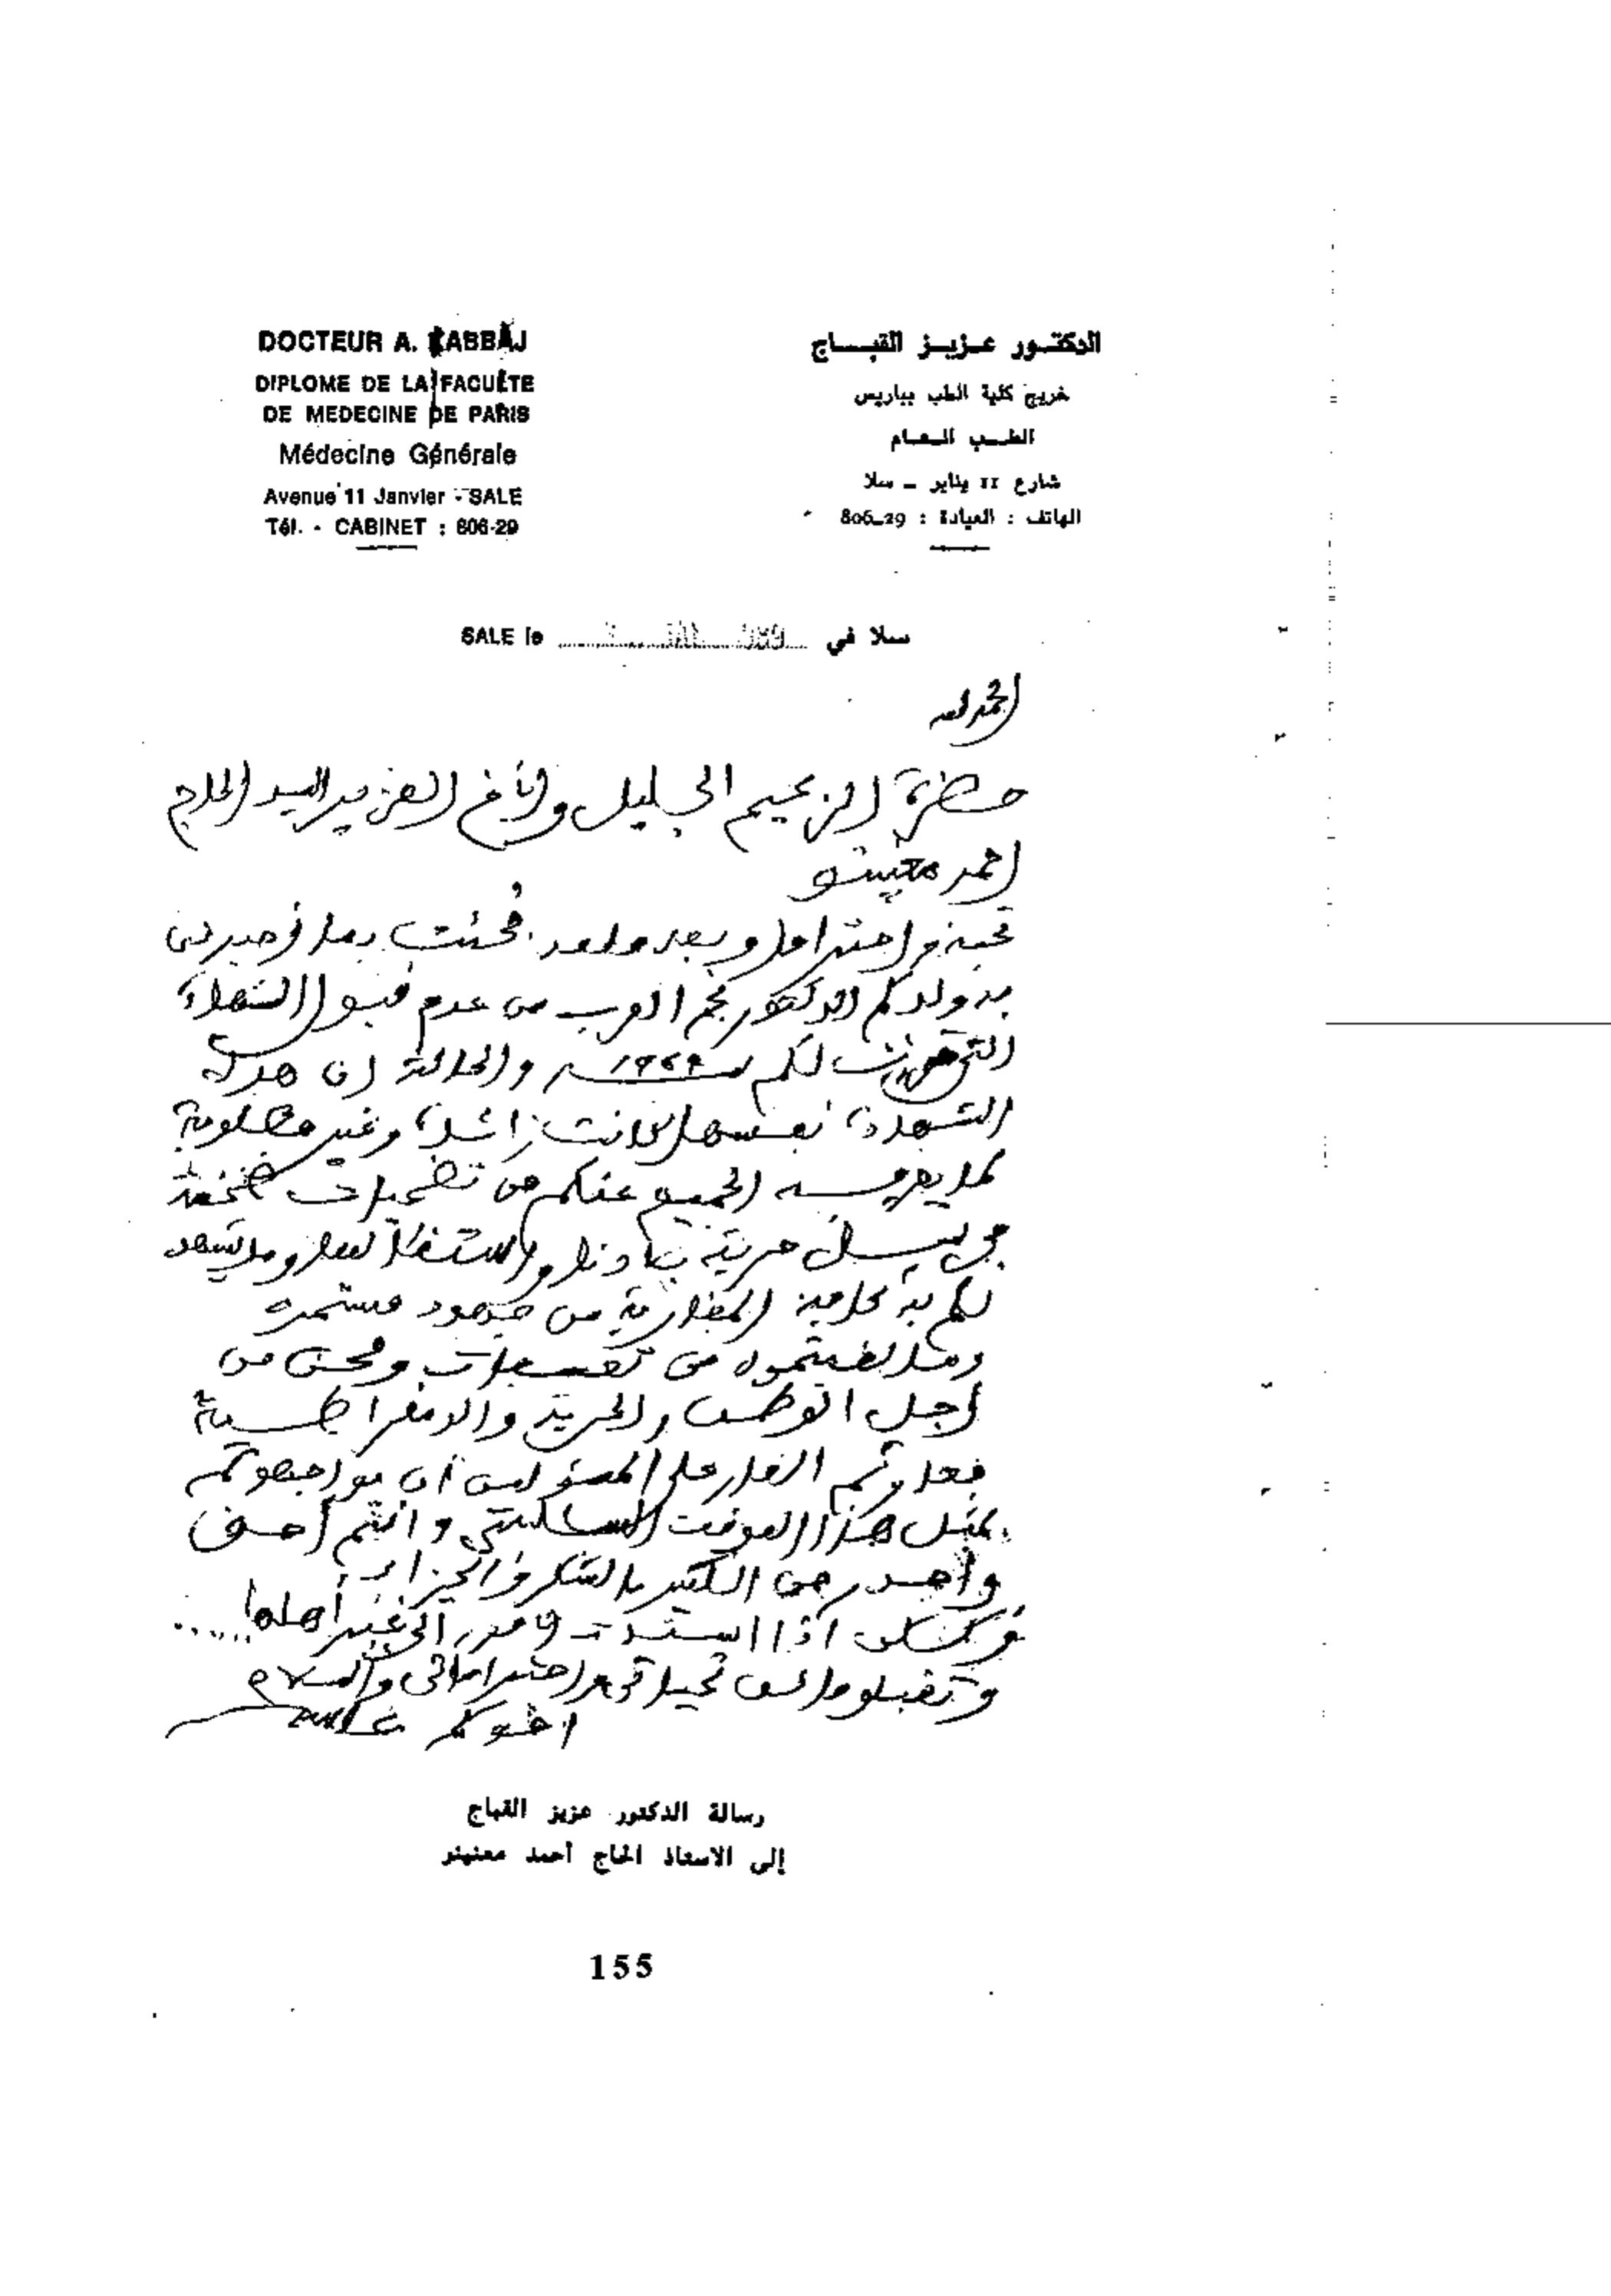 DOCTEUR A. KABBAJ
DIPLOME DE LA FACULTE
DE MEDECINE DE PARIS
Médecine Générale
Avenue 11 Janvier - SALE
Tél. - CABINET : 806-29
الدكتور عزيز القباج
خريج كلية الطب بباريس
الطب العام
شارع 11 يناير - سلا
الهاتف : العيادة : 29-806
SALE le سلا في
الحمد لله
حضرة الزعيم الجليل والأخ العزيز السيد الحاج
احمد معنينو
تحية واحتراما وبعد فوجئت بما
ولدكم الدكتور نجم العرب من عدم قبول الشهادة
التي لكم والحالة ان هذه
الشهادة نفسها كانت زائدة وغير مطلوبة
لما يعرفه الجميع عنكم من تضحيات ضخمة
في سبيل حرية بلادنا واستقلالها وما يشهد
لكم به المغاربة من جهود مستمرة
وما من تعسفات ومحن من
أجل الوطن والحرية والديمقراطية
العار على المسؤولين أن يواجهوكم
بمثل هذا الموقف وانتم أحق
وأجدر من الكثير بالشكر والجزاء
ولكن اذا اسندت الأمور الى غير أهلها .....
وتقبلوا تحياتي واحتراماتي والسلام
اخوكم
رسالة الدكتور عزيز القباج
إلى الاستاذ الحاج أحمد معنينو
155